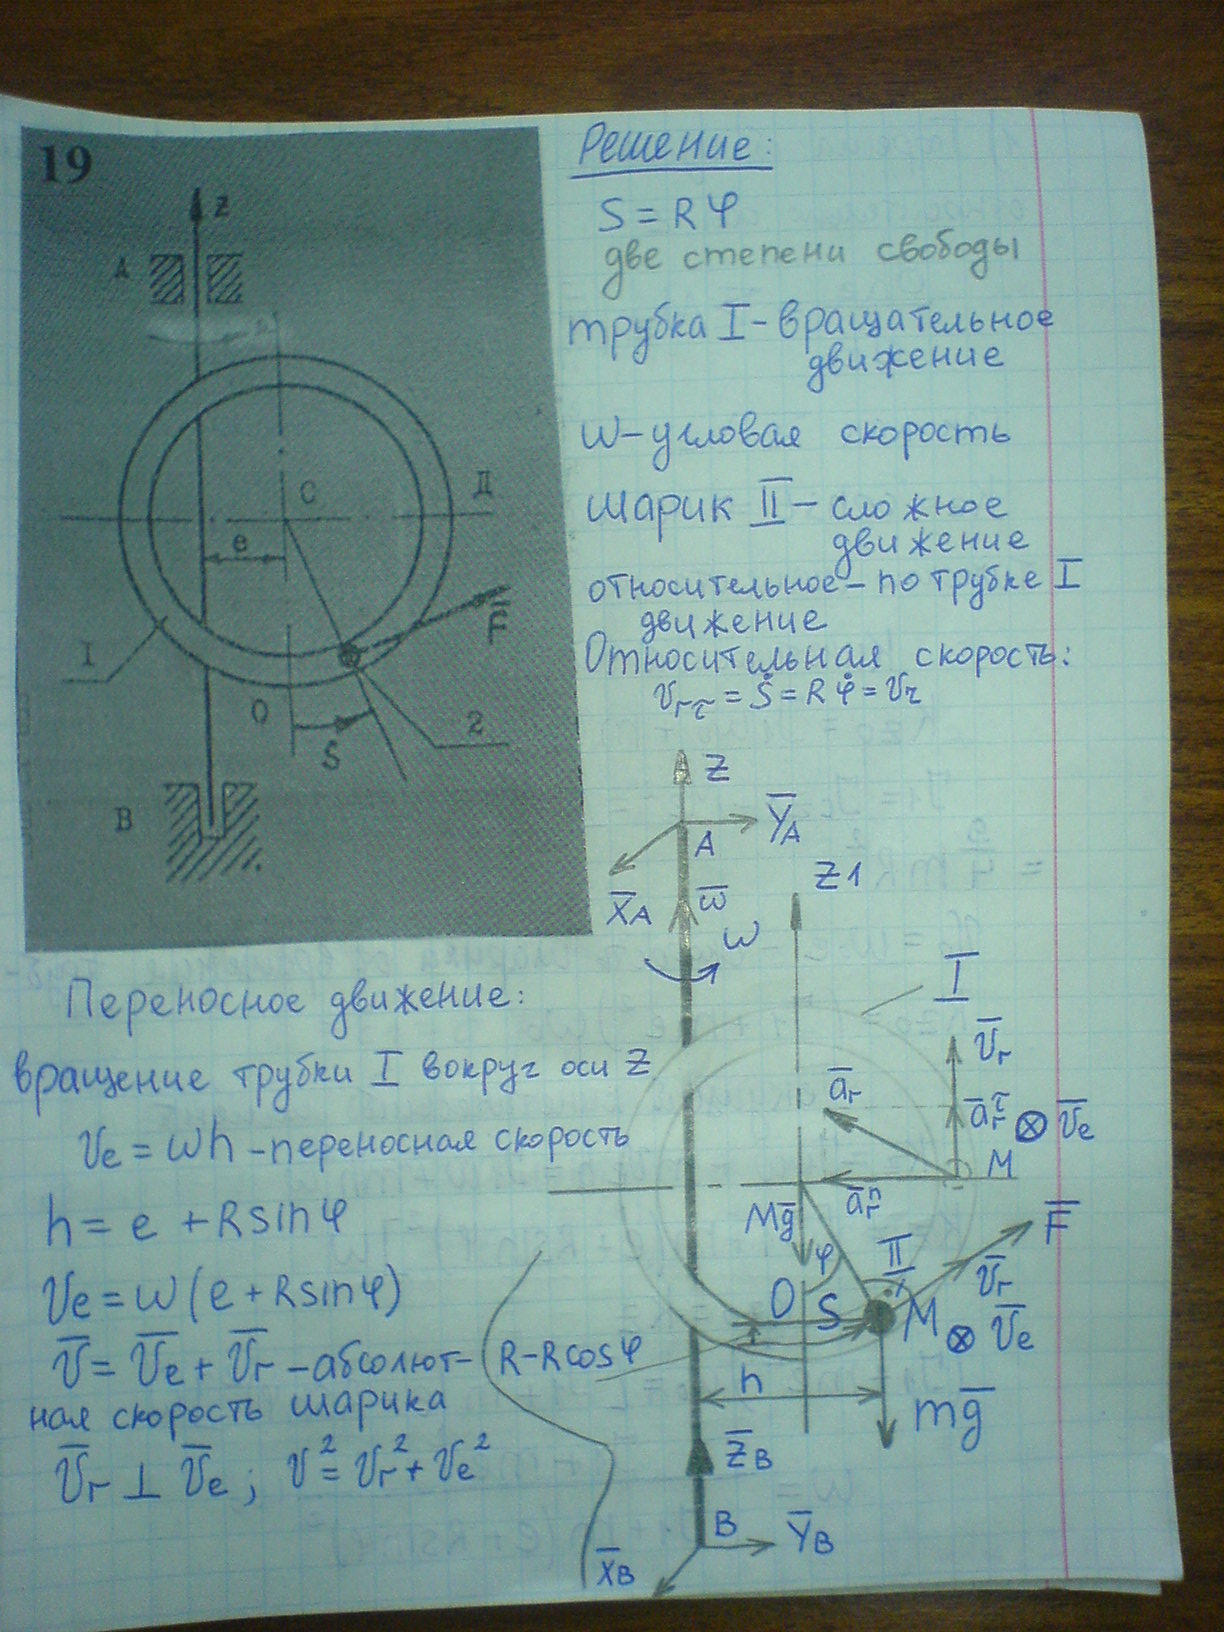 19
z
A
C
Д
e
F̅
1
O
S
2
B
Решение:
S = Rφ
две степени свободы
трубка I - вращательное
движение
ω - угловая скорость
шарик II - сложное
движение
относительное - по трубке I
движение
Относительная скорость:
V_rτ = Ṡ = Rφ̇ = V_r
Z
A
Y̅_A
X̅_A
ω̅
ω
Z1
I
V̅_r
a̅_r
a̅_r^τ
⊗ V̅_e
M
a̅_r^n
Mg̅
φ
II
F̅
V̅_r
O
S
M
⊗ V̅_e
h
mg̅
Z̅_B
B
Y̅_B
X̅_B
Переносное движение:
вращение трубки I вокруг оси Z
V_e = ωh - переносная скорость
h = e + Rsinφ
V_e = ω(e + Rsinφ)
V̅ = V̅_e + V̅_r - абсолют-
ная скорость шарика
V̅_r ⊥ V̅_e ; V² = V_r² + V_e²
R - Rcosφ